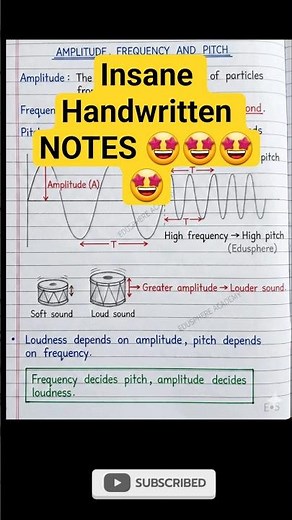 AMPLITUDE, FREQUENCY AND PITCH
Amplitude : The of particles
Insane
Handwritten
NOTES 🤩🤩🤩
🤩
Frequen
pitch
Amplitude (A)
T
T
T
High frequency → High pitch
(Edusphere)
Greater amplitude → Louder sound.
Soft sound Loud sound
EDUSPHERE ACADEMY
• Loudness depends on amplitude, pitch depends
on frequency.
Frequency decides pitch, amplitude decides
loudness.
SUBSCRIBED